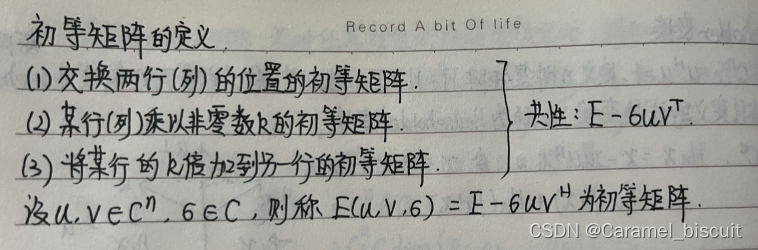 Record A bit Of life
初等矩阵的定义.
(1) 交换两行(列)的位置的初等矩阵.
(2) 某行(列)乘以非零数k的初等矩阵.
(3) 将某行的k倍加到另一行的初等矩阵.
共性: E-6uvᵀ.
设u, v∈Cⁿ, 6∈C, 则称 E(u,v,6) = E-6uvᴴ 为初等矩阵.
CSDN @Caramel_biscuit